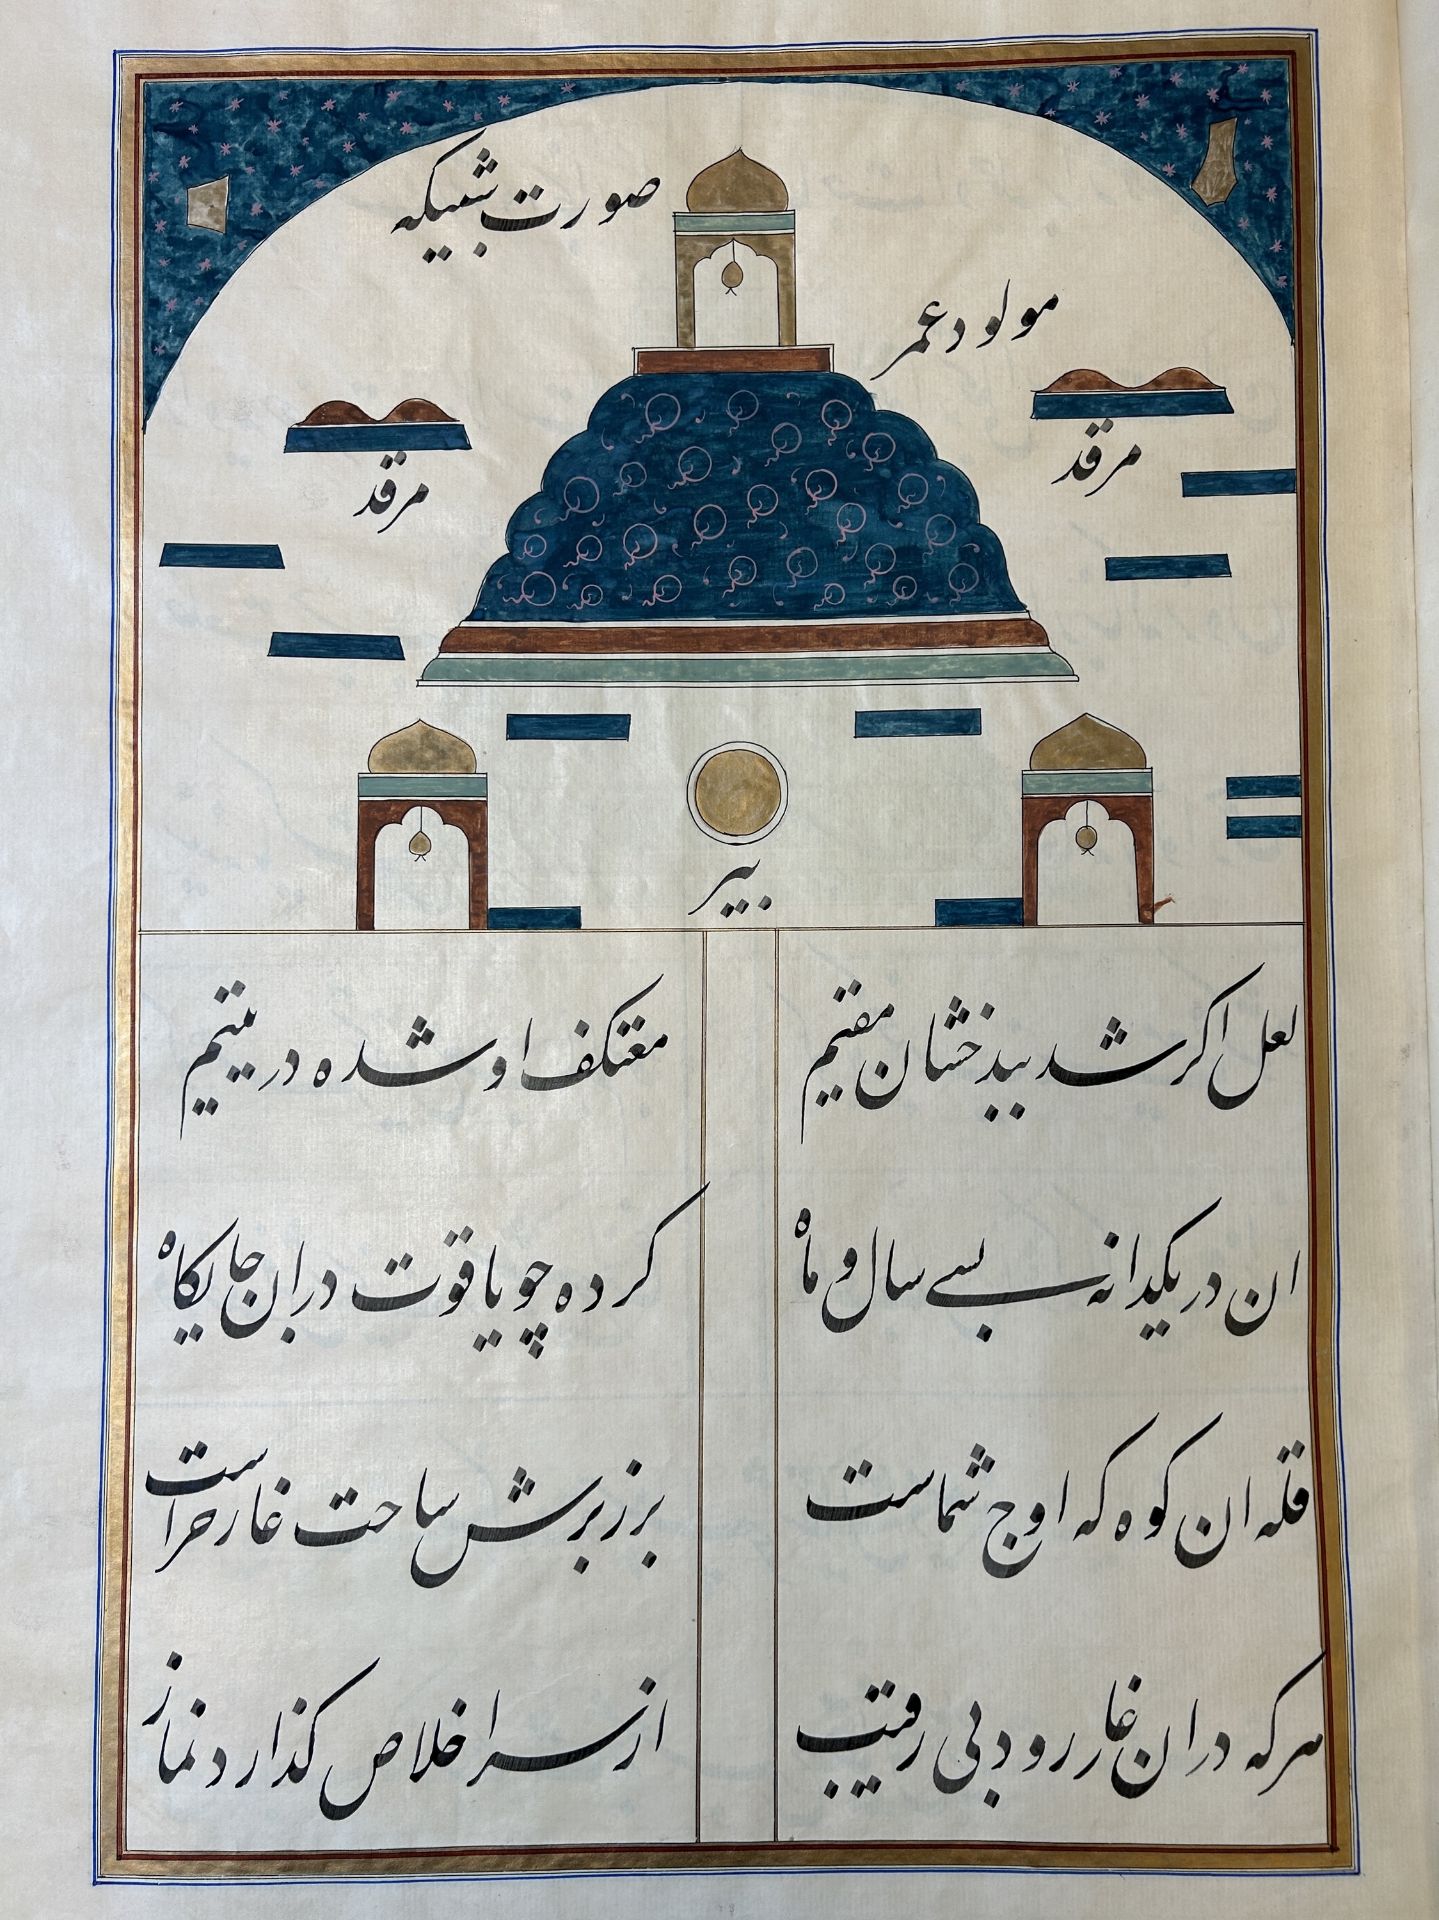 صورت شبیکه
مولود عمر
مرقد
مرقد
بیر
لعل اکر شد ببدخشان مقیم
معتکف او شده در یتیم
ان در یکدانه بسے سال و ماه
کرده چو یاقوت دران جایکاه
قله ان کوه که اوج شماست
برزبرش ساحت غار حراست
هرکه دران غار رود بی رقیب
از سر اخلاص کذارد نماز